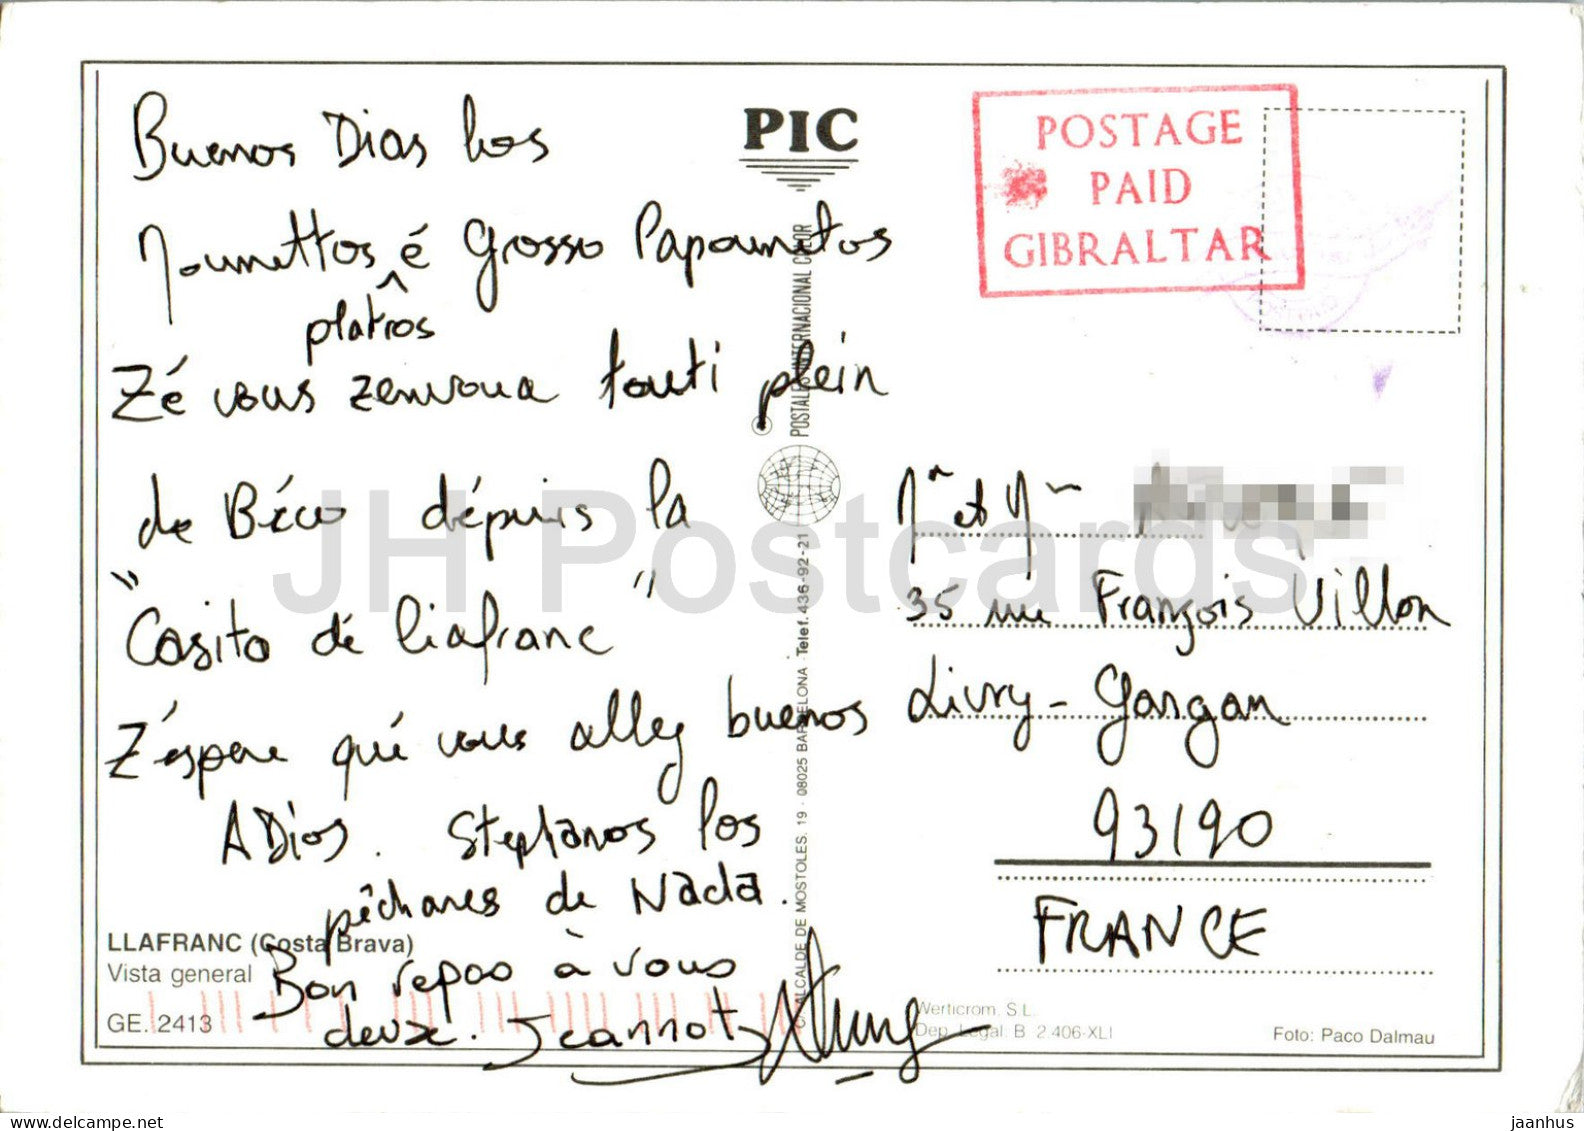 Buenos Dias los
Mounettos é Grosso Papounetos
platrôs
Zé vous zenvoua touti plein
de Béco dépuis la
"Casito dé Liafranc"
Z'espere qué vous allez buenos
ADios. Stephanos los
pêchares de Nada.
Bon repao à vous
deux. Jeannot
PIC
POSTALES INTERNACIONAL COLOR
C/. ALCALDE DE MOSTOLES, 19 - 08025 BARCELONA - Telef. 436-92-21
POSTAGE
PAID
GIBRALTAR
Mr et Mme
35 rue François Villon
Livry-Gargan
93190
FRANCE
LLAFRANC (Costa Brava)
Vista general
GE. 2413
Werticrom. S.L.
Dep. Legal. B. 2.406-XLI
Foto: Paco Dalmau
JH Postcards
delcampe.net
jaanhus